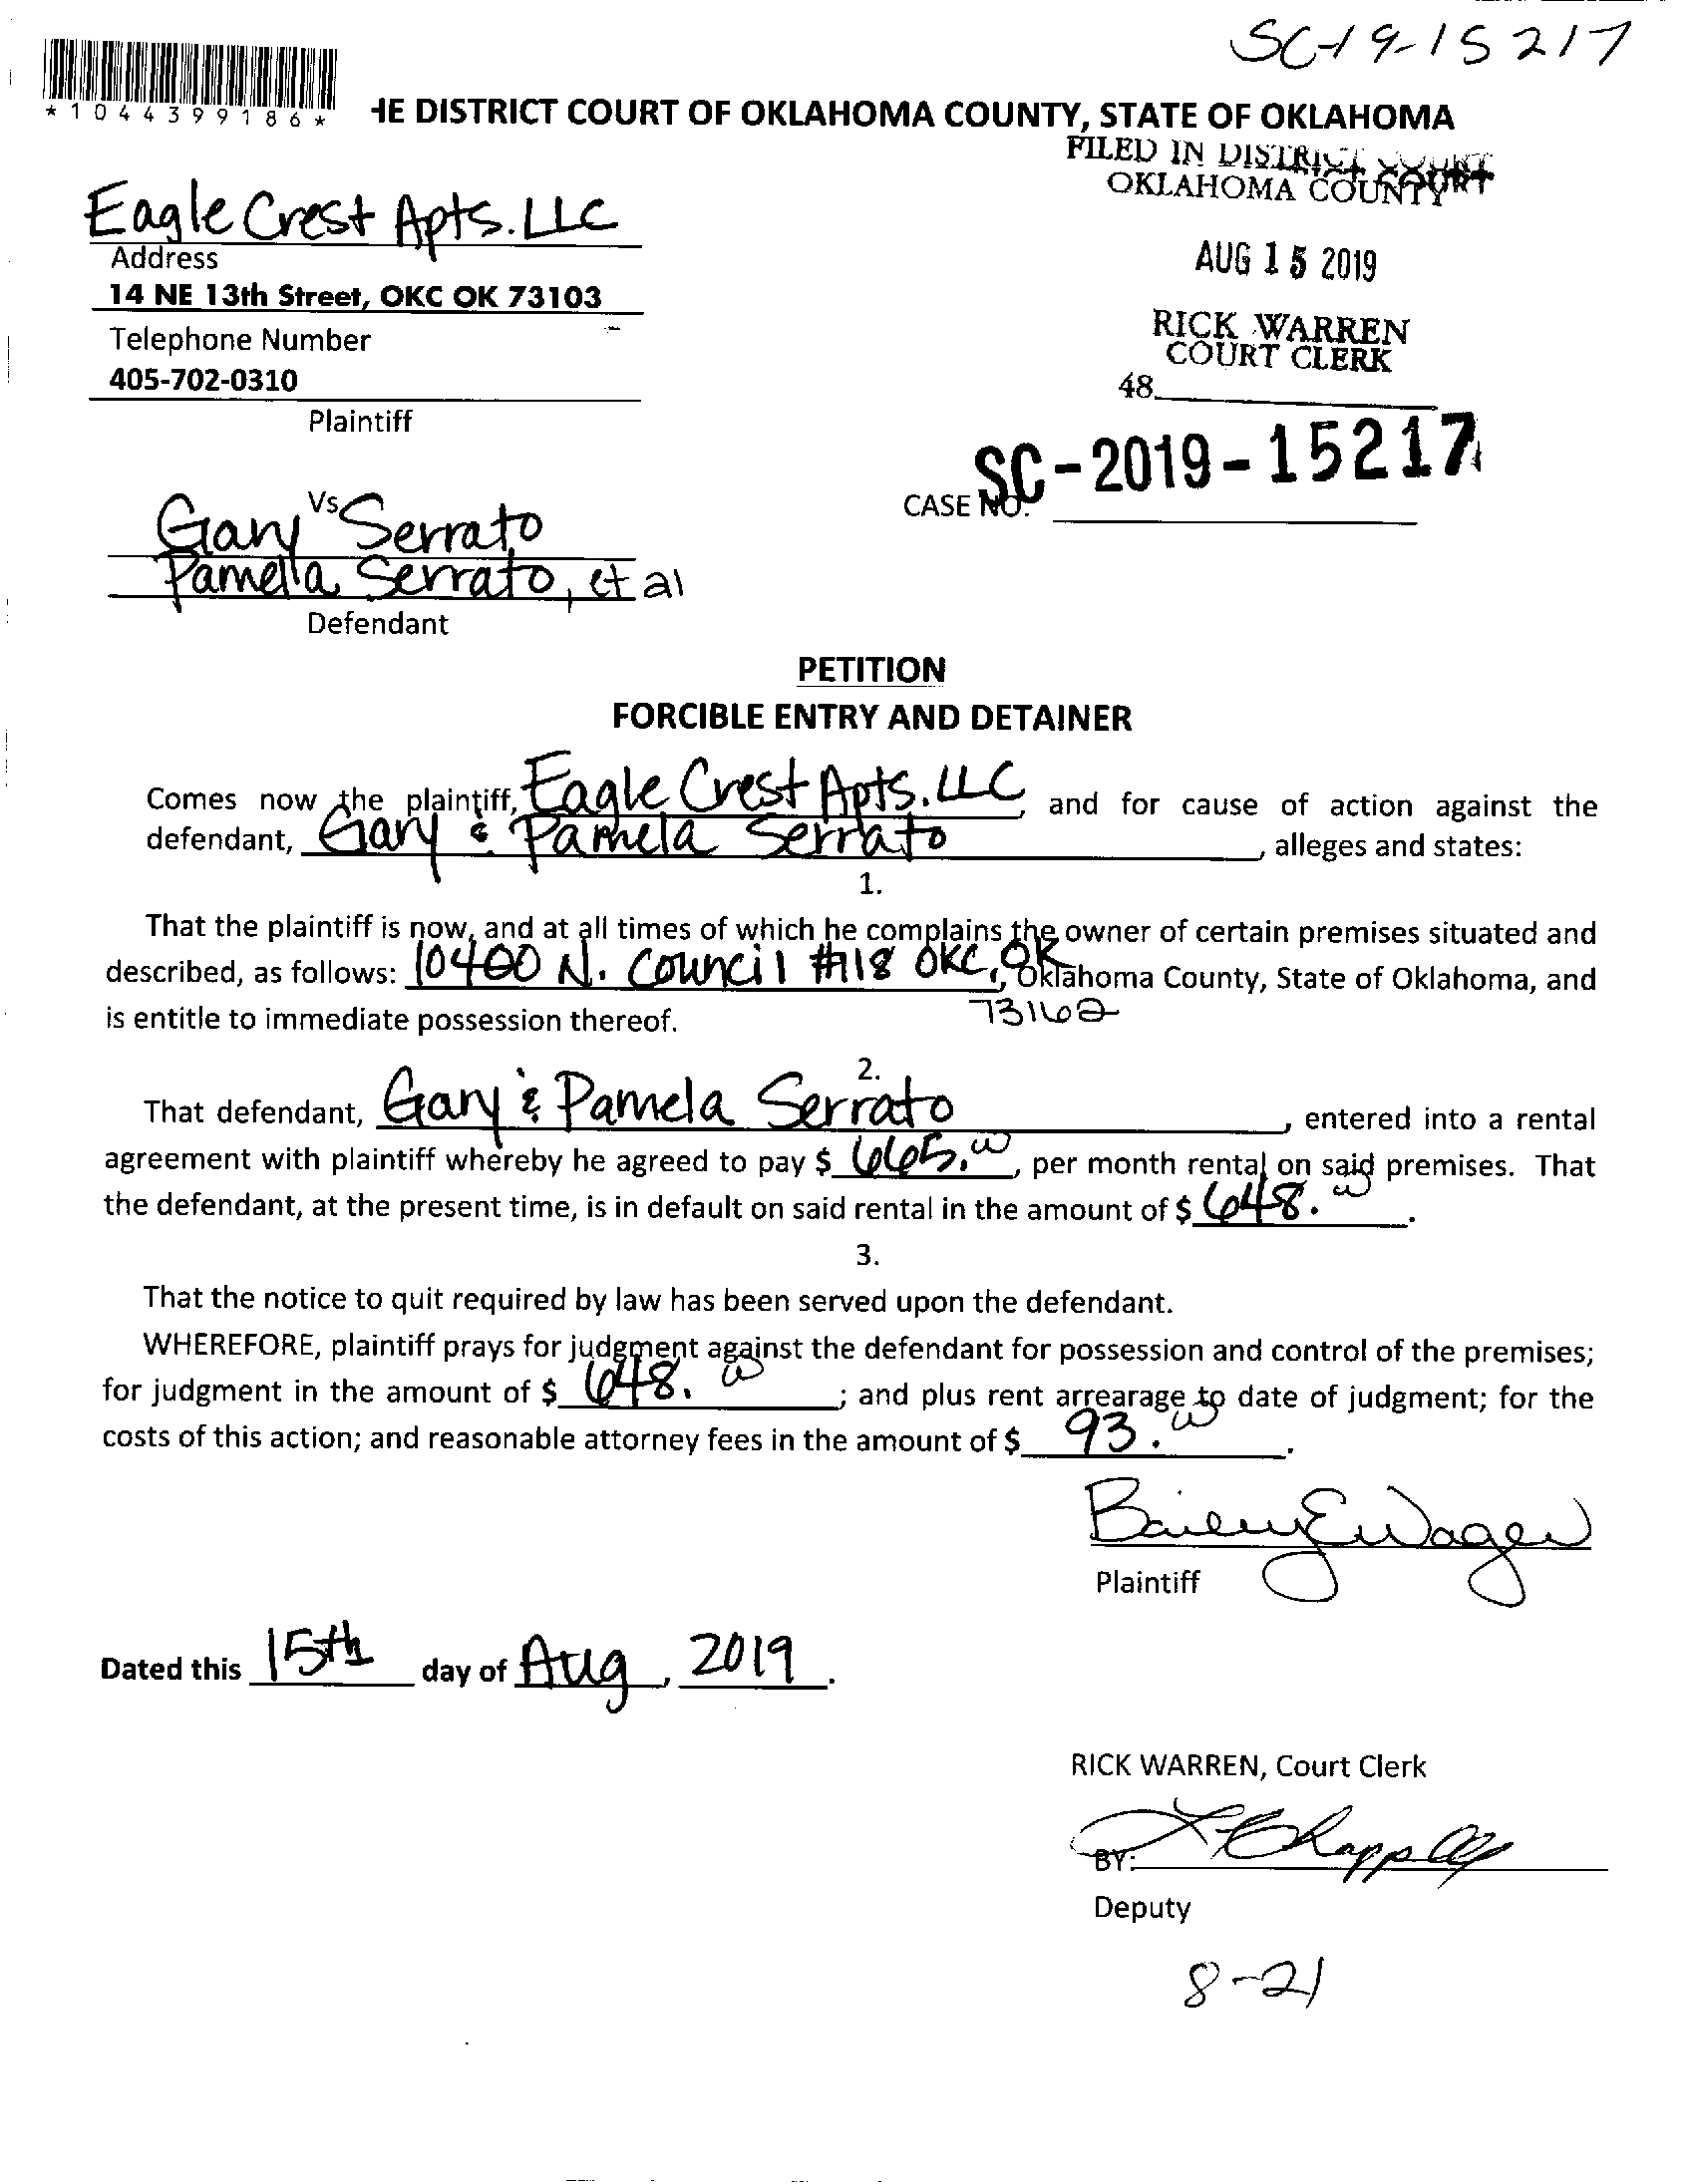 SC-19-15217
*1044399186*
HE DISTRICT COURT OF OKLAHOMA COUNTY, STATE OF OKLAHOMA
FILED IN DISTRICT COURT
OKLAHOMA COUNTY
Eagle Crest Apts. LLC
Address
AUG 15 2019
14 NE 13th Street, OKC OK 73103
Telephone Number
RICK WARREN
COURT CLERK
405-702-0310
48
Plaintiff
SC-2019-15217
CASE NO.
Vs
Gary Serrato
Pamella Serrato, et al
Defendant
PETITION
FORCIBLE ENTRY AND DETAINER
Comes now the plaintiff, Eagle Crest Apts. LLC, and for cause of action against the
defendant, Gary & Pamela Serrato, alleges and states:
1.
That the plaintiff is now, and at all times of which he complains the owner of certain premises situated and
described, as follows: 10400 N. Council #118 OKC, OK, Oklahoma County, State of Oklahoma, and
73162
is entitle to immediate possession thereof.
2.
That defendant, Gary & Pamela Serrato, entered into a rental
agreement with plaintiff whereby he agreed to pay $ 665.00, per month rental on said premises. That
the defendant, at the present time, is in default on said rental in the amount of $ 648.00.
3.
That the notice to quit required by law has been served upon the defendant.
WHEREFORE, plaintiff prays for judgment against the defendant for possession and control of the premises;
for judgment in the amount of $ 648.00; and plus rent arrearage to date of judgment; for the
costs of this action; and reasonable attorney fees in the amount of $ 93.00.
Plaintiff
Dated this 15th day of Aug, 2019.
RICK WARREN, Court Clerk
BY:
Deputy
8-21